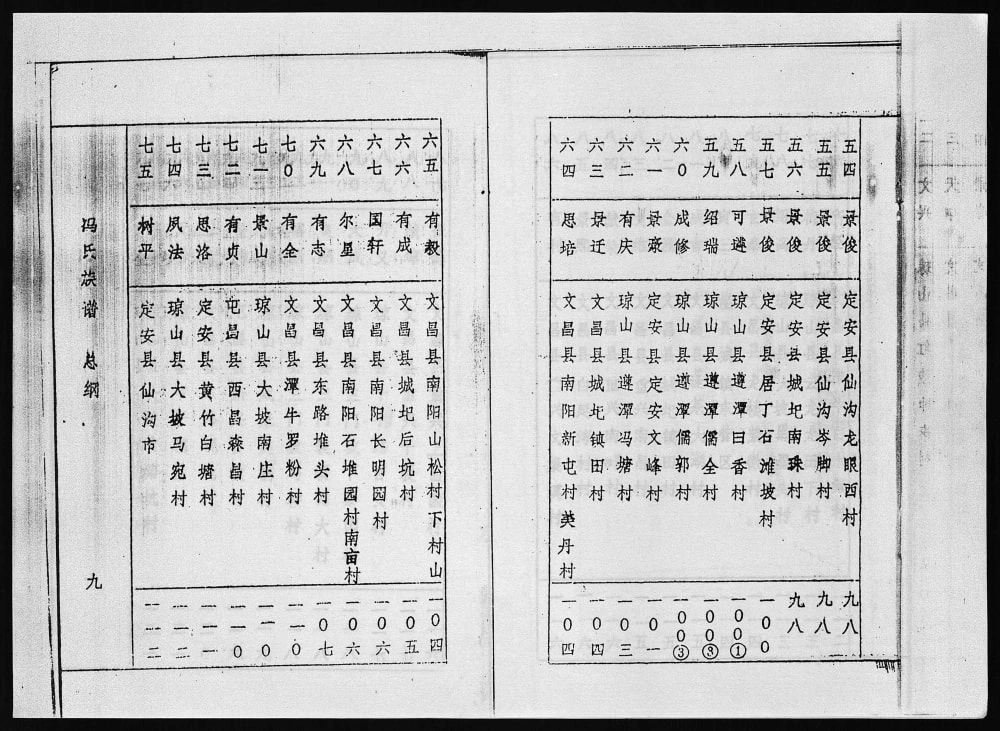 五四 景俊 定安县仙沟龙眼西村 九八
五五 景俊 定安县仙沟岑脚村 九八
五六 景俊 定安县城圯南珠村 九八
五七 景俊 定安县居丁石滩坡村 一00
五八 可遴 琼山县遵潭曰香村 一00①
五九 绍瑞 琼山县遵潭儒全村 一00③
六0 成修 琼山县遵潭儒郭村 一00③
六一 景豪 定安县定安文峰村 一0一
六二 有庆 琼山县遵潭冯塘村 一0三
六三 景迁 文昌县城圯镇田村 一0四
六四 思培 文昌县南阳新屯村美丹村 一0四
六五 有毅 文昌县南阳山松村下村山 一0四
六六 有成 文昌县城圯后坑村 一0五
六七 国轩 文昌县南阳长明园村 一0六
六八 尔星 文昌县南阳石堆园村南亩村 一0六
六九 有志 文昌县东路堆头村 一0七
七0 有全 文昌县潭牛罗粉村 一一0
七一 景山 琼山县大坡南庄村 一一0
七二 有贞 屯昌县西昌森昌村 一一0
七三 思洛 定安县黄竹白塘村 一一一
七四 夙法 琼山县大坡马宛村 一一二
七五 树平 定安县仙沟市 一一二
冯氏族谱 总纲 九